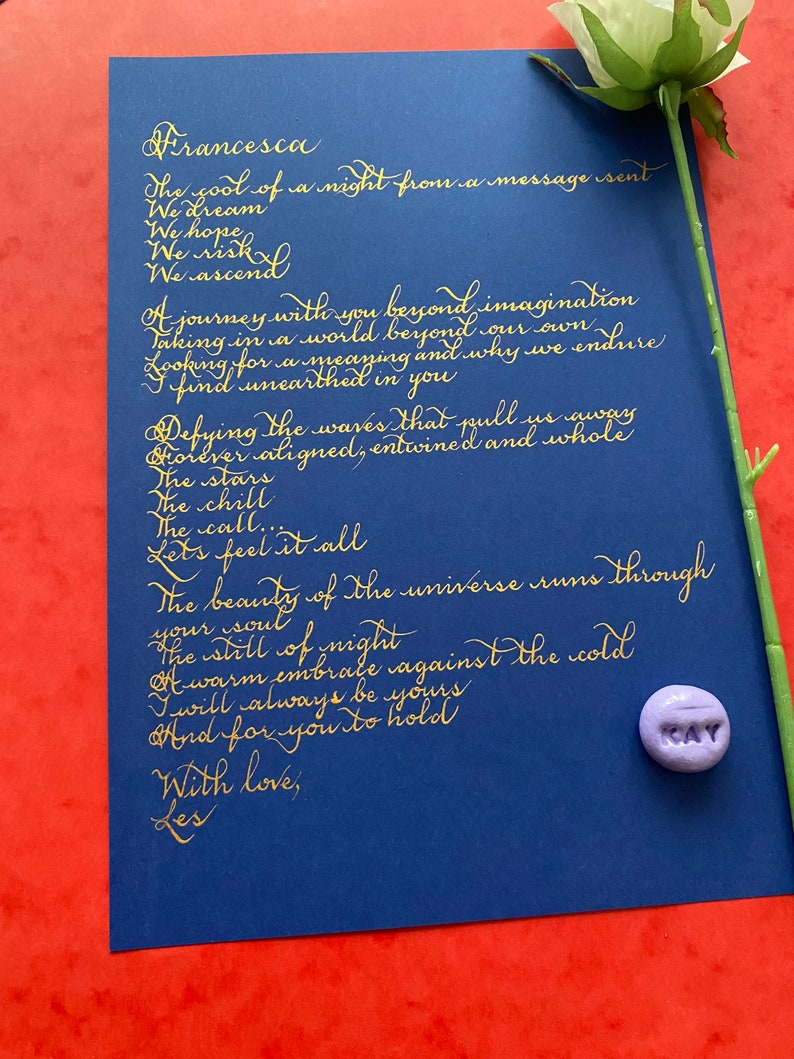 Francesca
The cool of a night from a message sent
We dream
We hope
We risk
We ascend
A journey with you beyond imagination
Taking in a world beyond our own
Looking for a meaning and why we endure
I find unearthed in you
Defying the waves that pull us away
Forever aligned, entwined and whole
The stars
The chill
The call...
Lets feel it all
The beauty of the universe runs through
your soul
The still of night
A warm embrace against the cold
I will always be yours
And for you to hold
With love,
Les
KAY